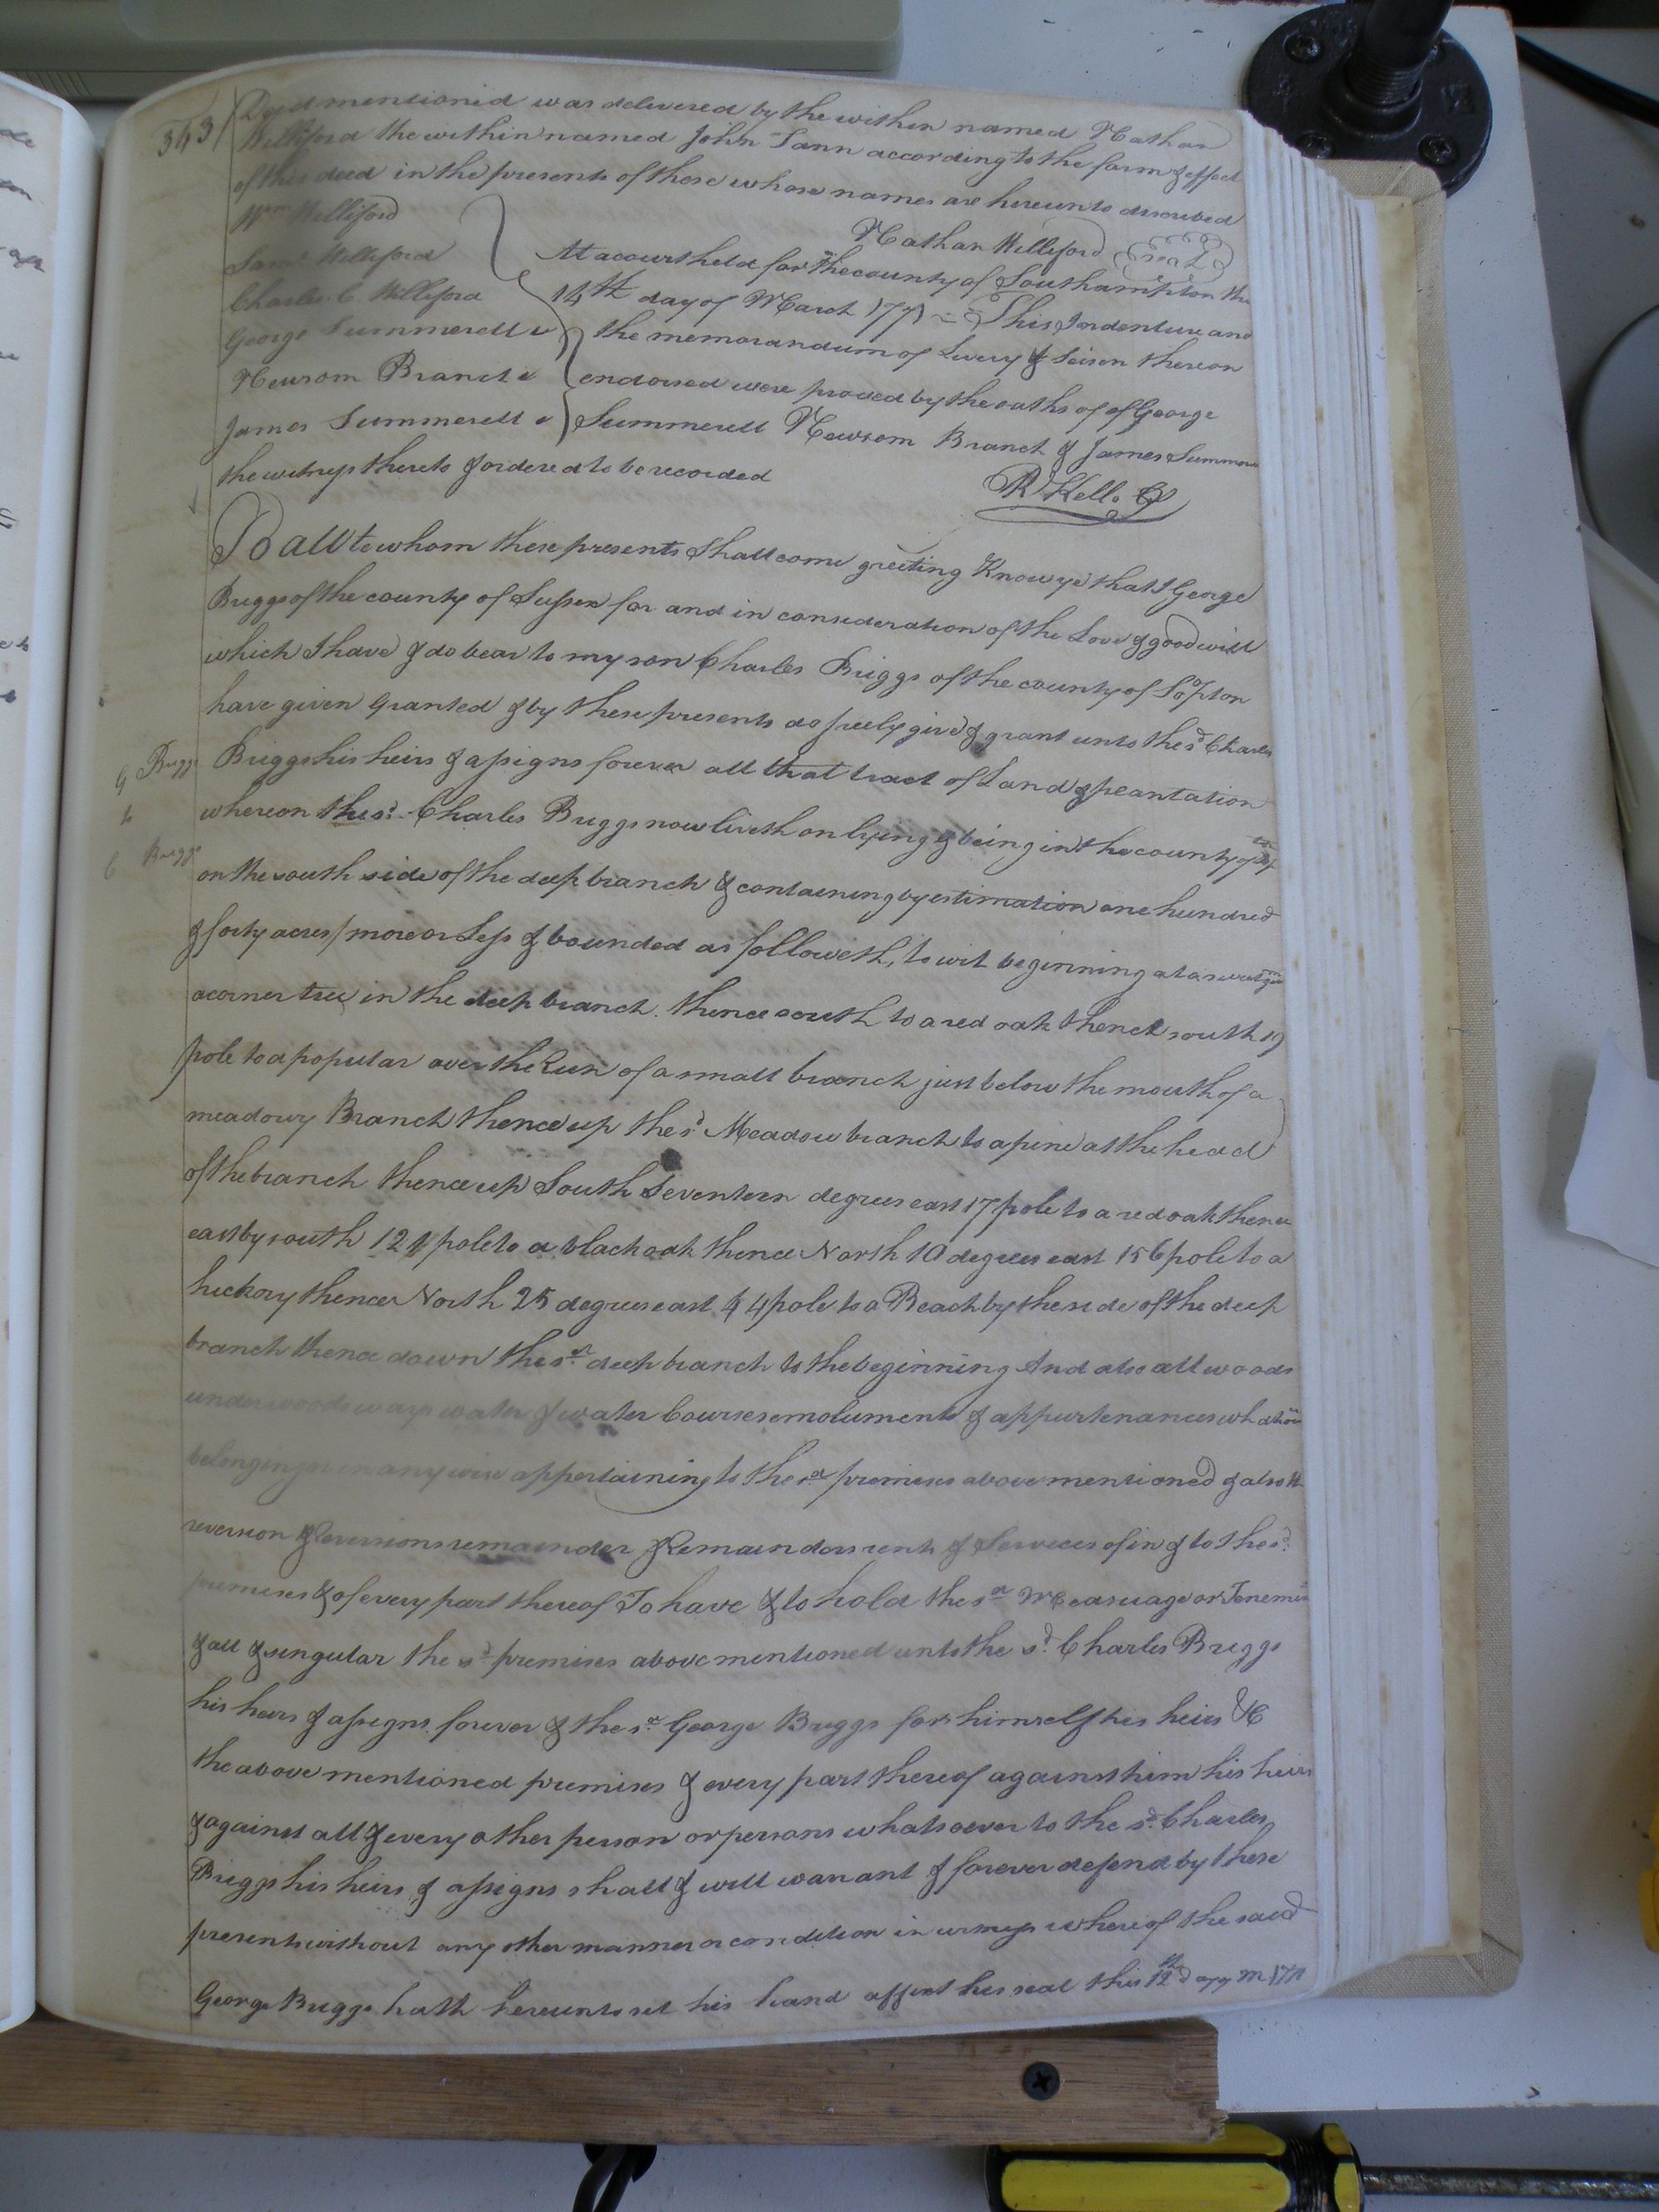 343
Deed mentioned was delivered by the within named Nathan
Williford the within named John Tann according to the form & effect
of this deed in the presents of these whose names are hereunto described
Wm Williford
Nathan Williford (seal)
Saml Williford
Charles C. Williford
George Summerell
Newsom Branch
James Summerell
At a court held for the county of Southampton the
14th day of March 1771 = This Indenture and
the memorandum of Livery & Seisen thereon
endorsed were proved by the oaths of of George
Summerell Newsom Branch & James Summerell
the witness thereto & ordered to be recorded
R Kello C
To all to whom these presents shall come greeting Know ye that I George
Briggs of the county of Sussex for and in consideration of the Love & good will
which I have & do bear to my son Charles Briggs of the county of Sopton
have given granted & by these presents do freely give & grant unto the sd Charles
G Briggs
to
C Briggs
Briggs his heirs & assigns forever all that tract of Land & plantation
whereon the sd Charles Briggs now liveth on lying & being in the county of
on the south side of the deep branch & containing by estimation one hundred
& forty acres/more or Less & bounded as followeth, to wit beginning at a sweet gum
a corner tree in the deep branch. thence south to a red oak thence south 19
pole to a popular over the Run of a small branch just below the mouth of a
meadowy Branch thence up the sd Meadow branch to a pine at the head
of the branch thence up South Seventeen degrees east 17 pole to a red oak thence
east by south 124 pole to a black oak thence North 10 degrees east 156 pole to a
hickory thence North 25 degrees east 44 pole to a Beach by the side of the deep
branch thence down the sd deep branch to the beginning And also all woods
underwoods ways water & water Courses emoluments & appurtenances whatsoever
belonging or in any wise appertaining to the sd premises above mentioned & also the
reversion & Reversions remainder & Remainders rents & Services of in & to the sd
premises & of every part thereof To have & to hold the sd Measuage or Tenement
& all & singular the sd premises above mentioned unto the sd Charles Briggs
his heirs & assigns forever & the sd George Briggs for himself his heirs &C
the above mentioned premises & every part thereof against him his heirs
& against all & every other person or persons whatsoever to the sd Charles
Briggs his heirs & assigns shall & will warrant & forever defend by these
presents without any other manner or condition in witness whereof the said
George Briggs hath hereunto set his hand affixt his seal this 12th day M 1771